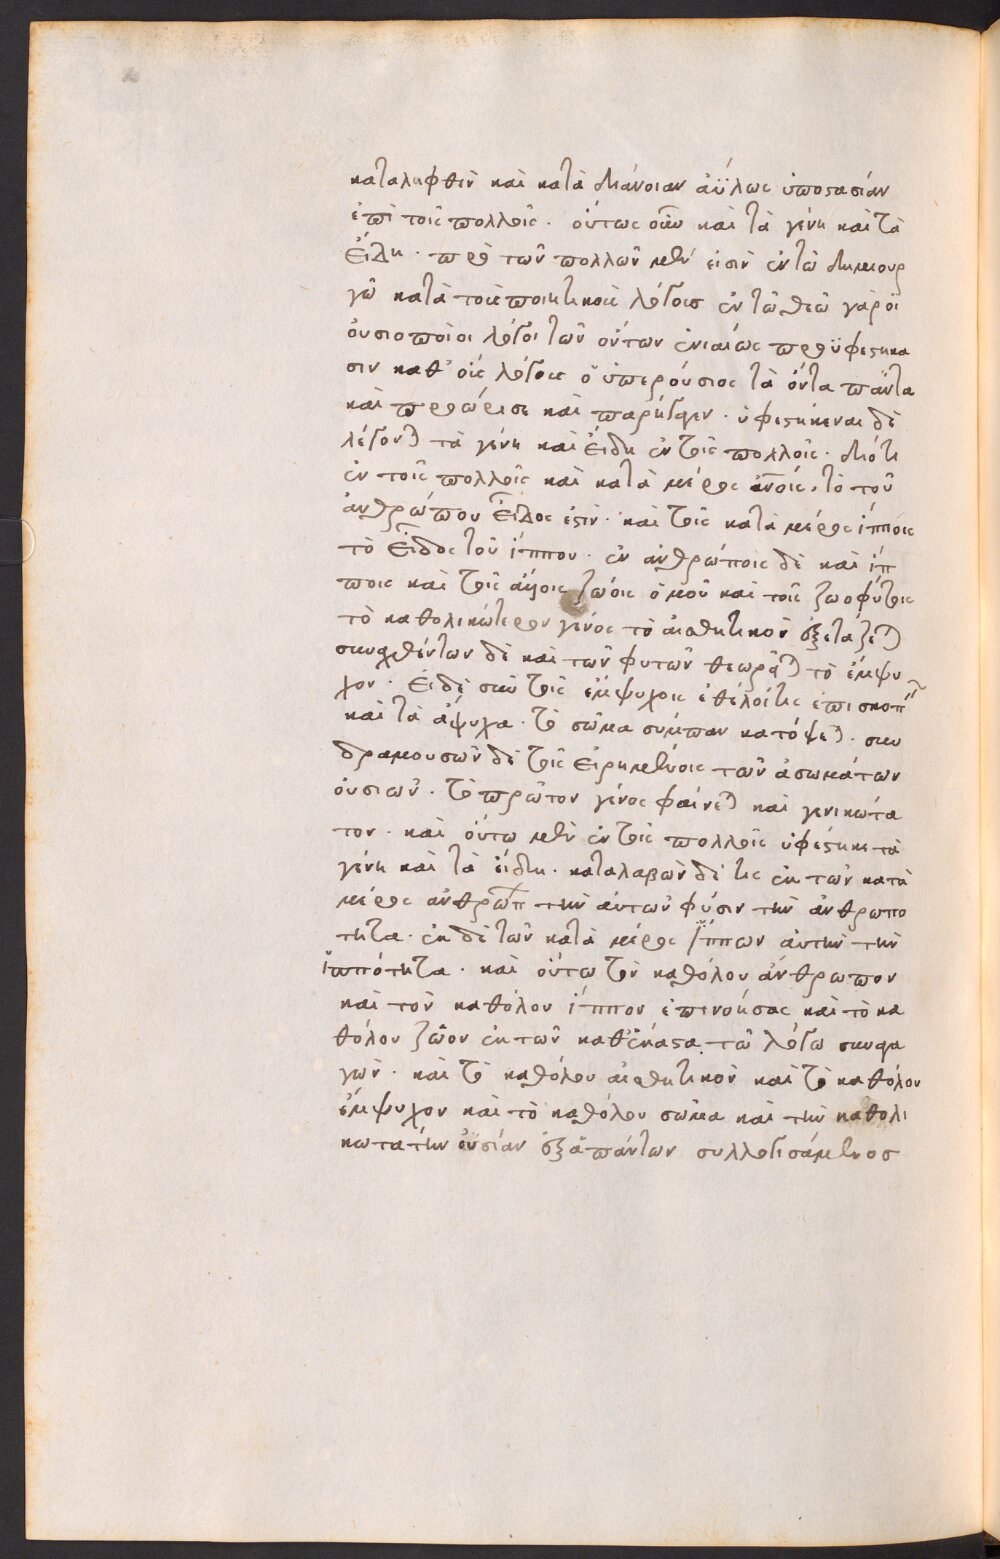 καταληφθὲν καὶ κατὰ διάνοιαν ἀΰλως ὑποστασίαν
ἐπὶ τοῖς πολλοῖς · οὕτως οὖν καὶ τὰ γένη καὶ τὰ
εἴδη · πρὸ τῶν πολλῶν μέν εἰσιν ἐν τῶ δημιουρ
γῶ κατὰ τοὺς ποιητικοὺς λόγους ἐν τῶ θεῶ γὰρ οἱ
οὐσιοποιοὶ λόγοι τῶν ὄντων ἑνιαίως προϋφεστήκα
σιν καθ' οὓς λόγους ὁ ὑπερούσιος τὰ ὄντα πάντα
καὶ προώρισε καὶ παρήγαγεν · ὑφεστηκέναι δὲ
λέγονται τὰ γένη καὶ εἴδη ἐν τοῖς πολλοῖς · διότι
ἐν τοῖς πολλοῖς καὶ κατὰ μέρος ἀνοις, τὸ τοῦ
ἀνθρώπου εἶδος ἐστὶν · καὶ τοῖς κατὰ μέρος ἵπποις
τὸ εἶδος τοῦ ἵππου · ἐν ἀνθρώποις δὲ καὶ ἵπ
ποις καὶ τοῖς ἄλλοις ζώοις ὁμοῦ καὶ τοῖς ζωοφύτοις
τὸ καθολικώτερον γένος τὸ αἰσθητικὸν ἐξετάζεται
συναχθέντων δὲ καὶ τῶν φυτῶν θεωρᾶται τὸ ἔμψυ
χον · εἰ δὲ σὺν τοῖς ἐμψύχοις ἐθέλοι τις ἐπισκοπεῖν
καὶ τὰ ἄψυχα · τὸ σῶμα σύμπαν κατόψεται · συν
δραμουσῶν δὲ τοῖς εἰρημένοις τῶν ἀσωμάτων
οὐσιῶν · τὸ πρῶτον γένος φαίνεται καὶ γενικώτα
τον · καὶ οὕτω μὲν ἐν τοῖς πολλοῖς ὑφέστηκε τὰ
γένη καὶ τὰ εἴδη · καταλαβὼν δέ τις ἐκ τῶν κατὰ
μέρος ἀνθρώπων τὴν αὐτῶν φύσιν τὴν ἀνθρωπό
τητα · ἐκ δὲ τῶν κατὰ μέρος ἵππων αὐτὴν τὴν
ἱππότητα · καὶ οὕτω τὸν καθόλου ἄνθρωπον
καὶ τὸν καθόλου ἵππον ἐπινοήσας καὶ τὸ κα
θόλου ζῶον ἐκ τῶν καθέκαστα τῶ λόγω συναγα
γών · καὶ τὸ καθόλου αἰσθητικὸν καὶ τὸ καθόλου
ἔμψυχον καὶ τὸ καθόλου σῶμα καὶ τὴν καθολι
κωτάτην οὐσίαν ἐξ ἁπάντων συλλογισάμενος